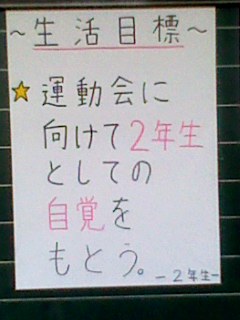 ～生活目標～
★運動会に
向けて2年生
としての
自覚を
もとう。
－2年生－